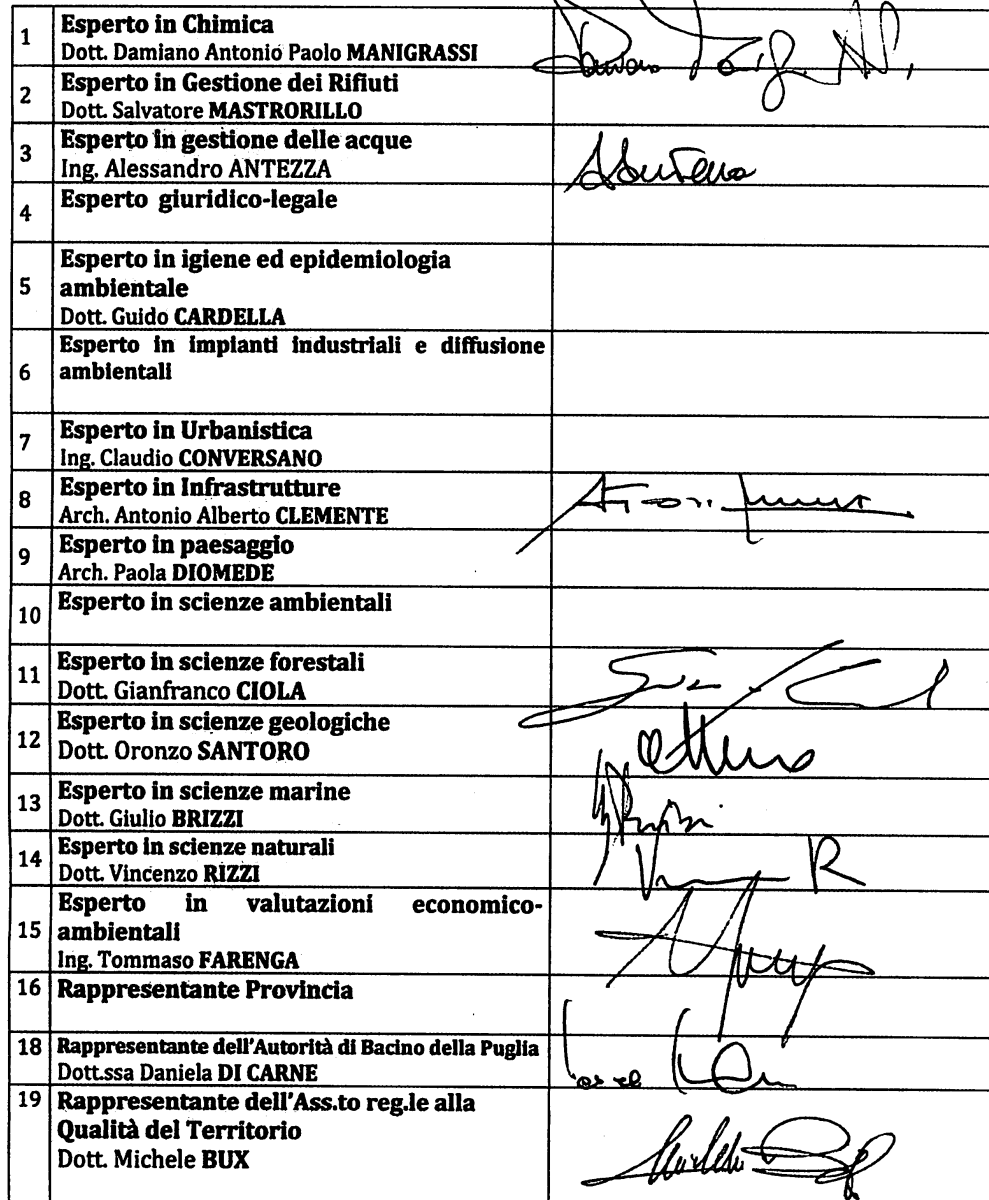 1
Esperto in Chimica
Dott. Damiano Antonio Paolo MANIGRASSI
2
Esperto in Gestione dei Rifiuti
Dott. Salvatore MASTRORILLO
3
Esperto in gestione delle acque
Ing. Alessandro ANTEZZA
4
Esperto giuridico-legale
5
Esperto in igiene ed epidemiologia
ambientale
Dott. Guido CARDELLA
6
Esperto in impianti industriali e diffusione
ambientali
7
Esperto in Urbanistica
Ing. Claudio CONVERSANO
8
Esperto in Infrastrutture
Arch. Antonio Alberto CLEMENTE
9
Esperto in paesaggio
Arch. Paola DIOMEDE
10
Esperto in scienze ambientali
11
Esperto in scienze forestali
Dott. Gianfranco CIOLA
12
Esperto in scienze geologiche
Dott. Oronzo SANTORO
13
Esperto in scienze marine
Dott. Giulio BRIZZI
14
Esperto in scienze naturali
Dott. Vincenzo RIZZI
15
Esperto in valutazioni economico-
ambientali
Ing. Tommaso FARENGA
16
Rappresentante Provincia
18
Rappresentante dell'Autorità di Bacino della Puglia
Dott.ssa Daniela DI CARNE
19
Rappresentante dell'Ass.to reg.le alla
Qualità del Territorio
Dott. Michele BUX